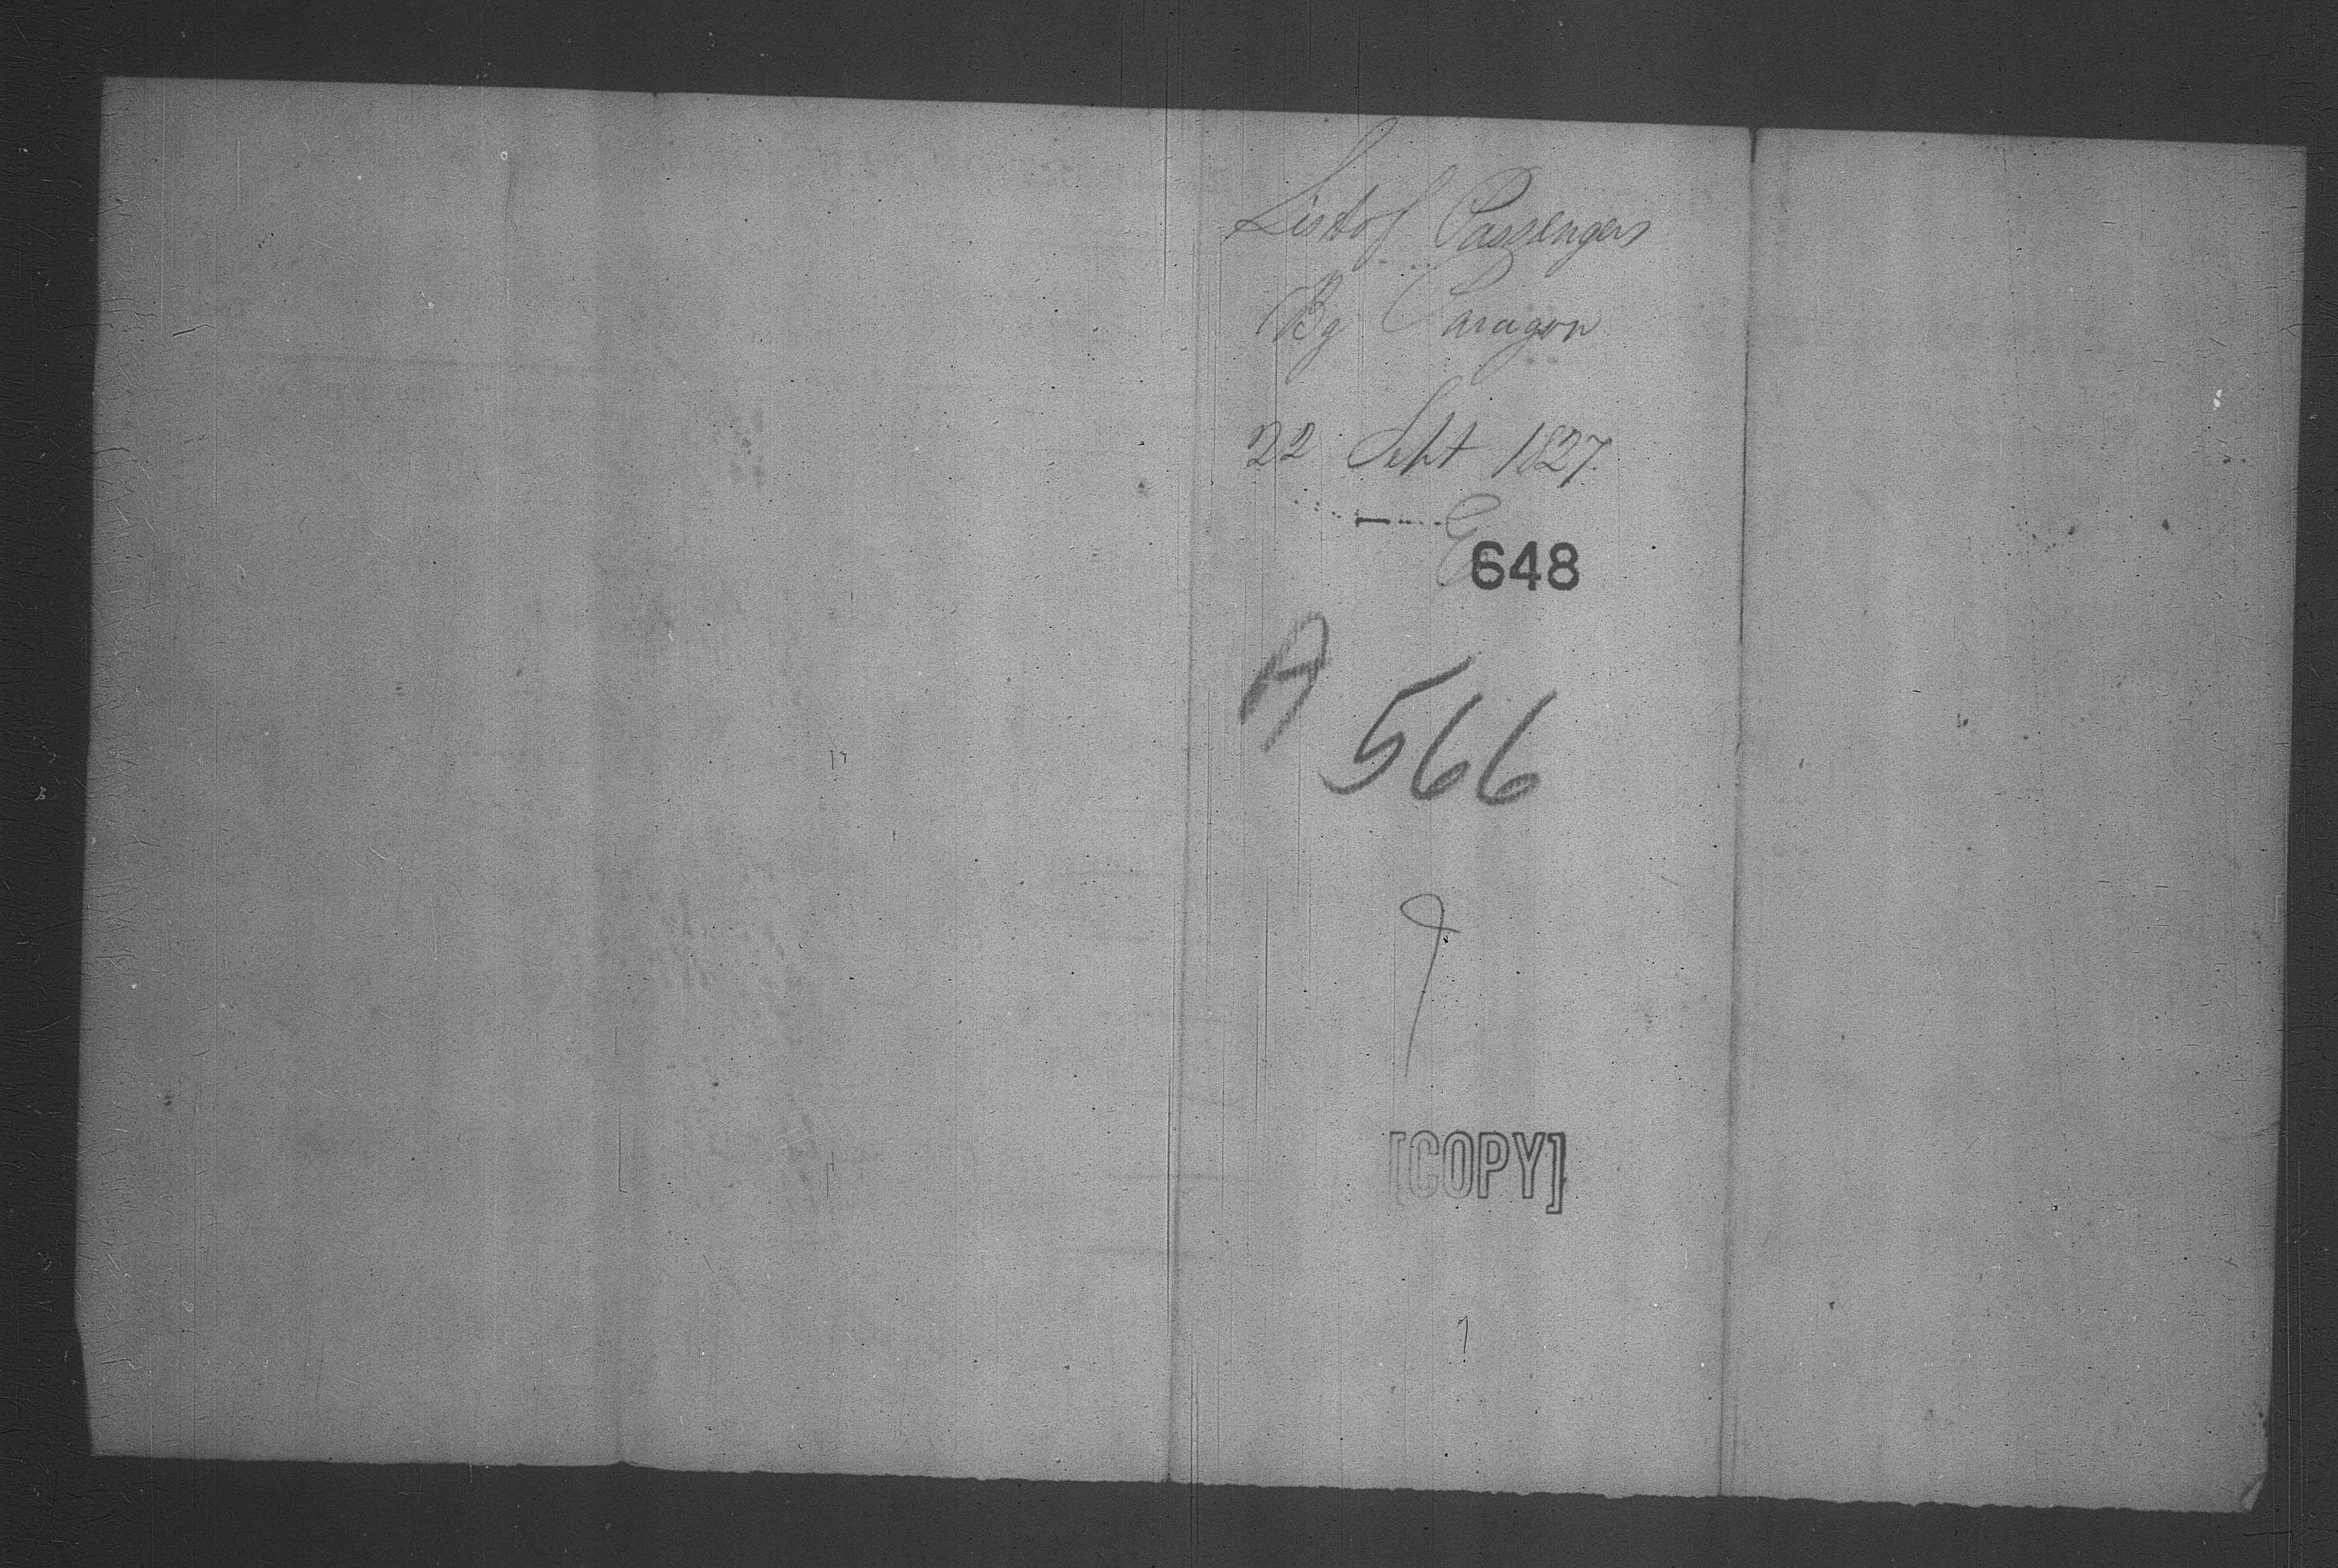 List of Passengers
Bg Paragon
22 Sept 1827.
648
A
566
9
[COPY]